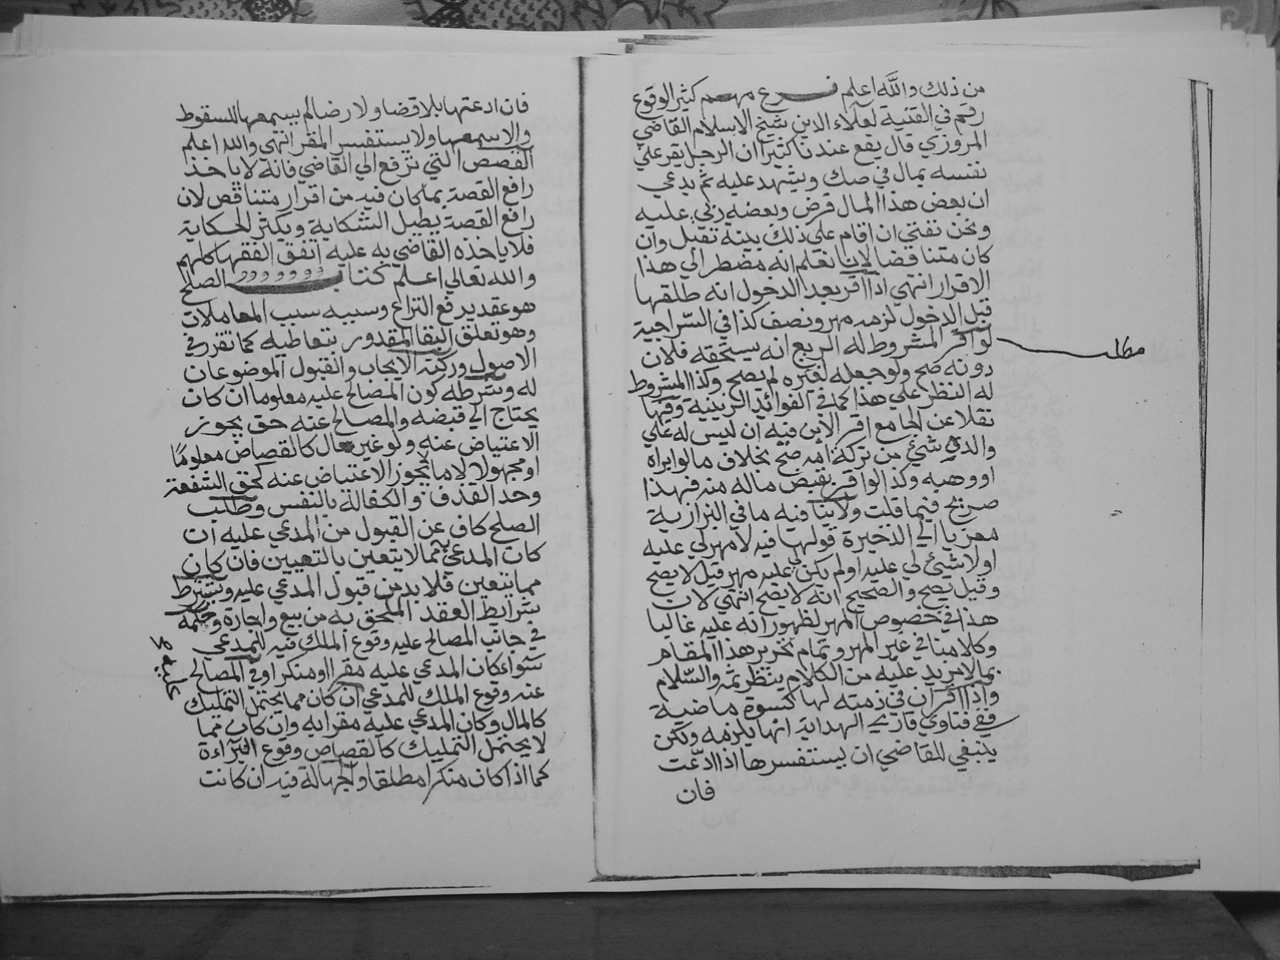 من ذلك والله اعلم فرع مهم كثير الوقوع
رقم في القنية لعلاء الدين شيخ الاسلام القاضي
المروزي قال يقع عندنا كثيرا ان الرجل يقر علي
نفسه بمال في صك ويشهد عليه ثم يدعي
ان بعض هذا المال قرض وبعضه ربي عليه
ونحن نفتي ان اقام علي ذلك بينة تقبل وان
كان متناقضا لانا نعلم انه مضطر الي هذا
الاقرار انتهي اذا اقر بعد الدخول انه طلقها
قبل الدخول لزمه مهر ونصف كذا في السراجية
مطلب
لو اقر المشروط له الريع انه يستحقه فلان
دونه صح ولو جعله لغيره لم يصح وكذا المشروط
له النظر علي هذا كما في الفوائد الزينية وفيها
نقلا عن الجامع اقر الابن فيه ان ليس له علي
والدي شئ من تركة امه صح بخلاف ما لو ابراه
او وهبه وكذا لو اقر بقبض ماله منه فهذا
صريح فيما قلت ولا ينافيه ما في البزازية
معزيا الي الذخيرة قولها فيه لا مهر لي عليه
او لا شئ لي عليه او لم يكن لي عليه مهر قيل لا يصح
وقيل يصح والصحيح انه لا يصح انتهي لان
هذا في خصوص المهر لظهور انه عليه غالبا
وكلامنا في غير المهر وتمام تحرير هذا المقام
بما لا مزيد عليه من الكلام ينظر ثمة والسلام
واذا اقر ان في ذمته لها كسوة ماضية
ففي فتاوي قاريء الهداية انها يلزمه ولكن
ينبغي للقاضي ان يستفسرها اذا ادعت
فان
فان ادعتها بلا قضا ولا رضا لم يسمعها للسقوط
والا سمعها ولا يستفسر المقر انتهي والله اعلم
القصص التي ترفع الي القاضي فانه لا ياخذ
رافع القصة بما كان فيه من اقرار متناقص لان
رافع القصة يطيل الشكاية ويكثر الحكاية
فلا ياخذه القاضي به عليه اتفق الفقها كلهم
والله تعالي اعلم كتاب الصلح
هو عقد يرفع النزاع وسببه سبب المعاملات
وهو تعلق البقا المقدور بتعاطيه كما تقرر في
الاصول وركنه الايجاب والقبول الموضوعان
له وشرطه كون المصالح عليه معلوما ان كان
يحتاج الي قبضه والمصالح عنه حق يجوز
الاعتياض عنه ولو غير مال كالقصاص معلوما
او مجهولا لا ما لا يجوز الاعتياض عنه كحق الشفعة
وحد القذف والكفالة بالنفس وطلب
الصلح كاف عن القبول من المدعي عليه ان
كان المدعي به مما لا يتعين بالتعيين فان كان
مما يتعين فلا بد من قبول المدعي عليه ويشترط
شرايط العقد الملحق به من بيع واجارة وحكمه
في جانب المصالح عليه وقوع الملك فيه للمدعي
سواء كان المدعي عليه مقرا او منكرا وفي المصالح
عنه وقوع الملك للمدعي ان كان مما يحتمل التمليك
كالمال وكان المدعي عليه مقرا به وان كان مما
لا يحتمل التمليك كالقصاص وقوع البراءة
كما اذا كان منكرا مطلقا والجهالة فيه ان كانت